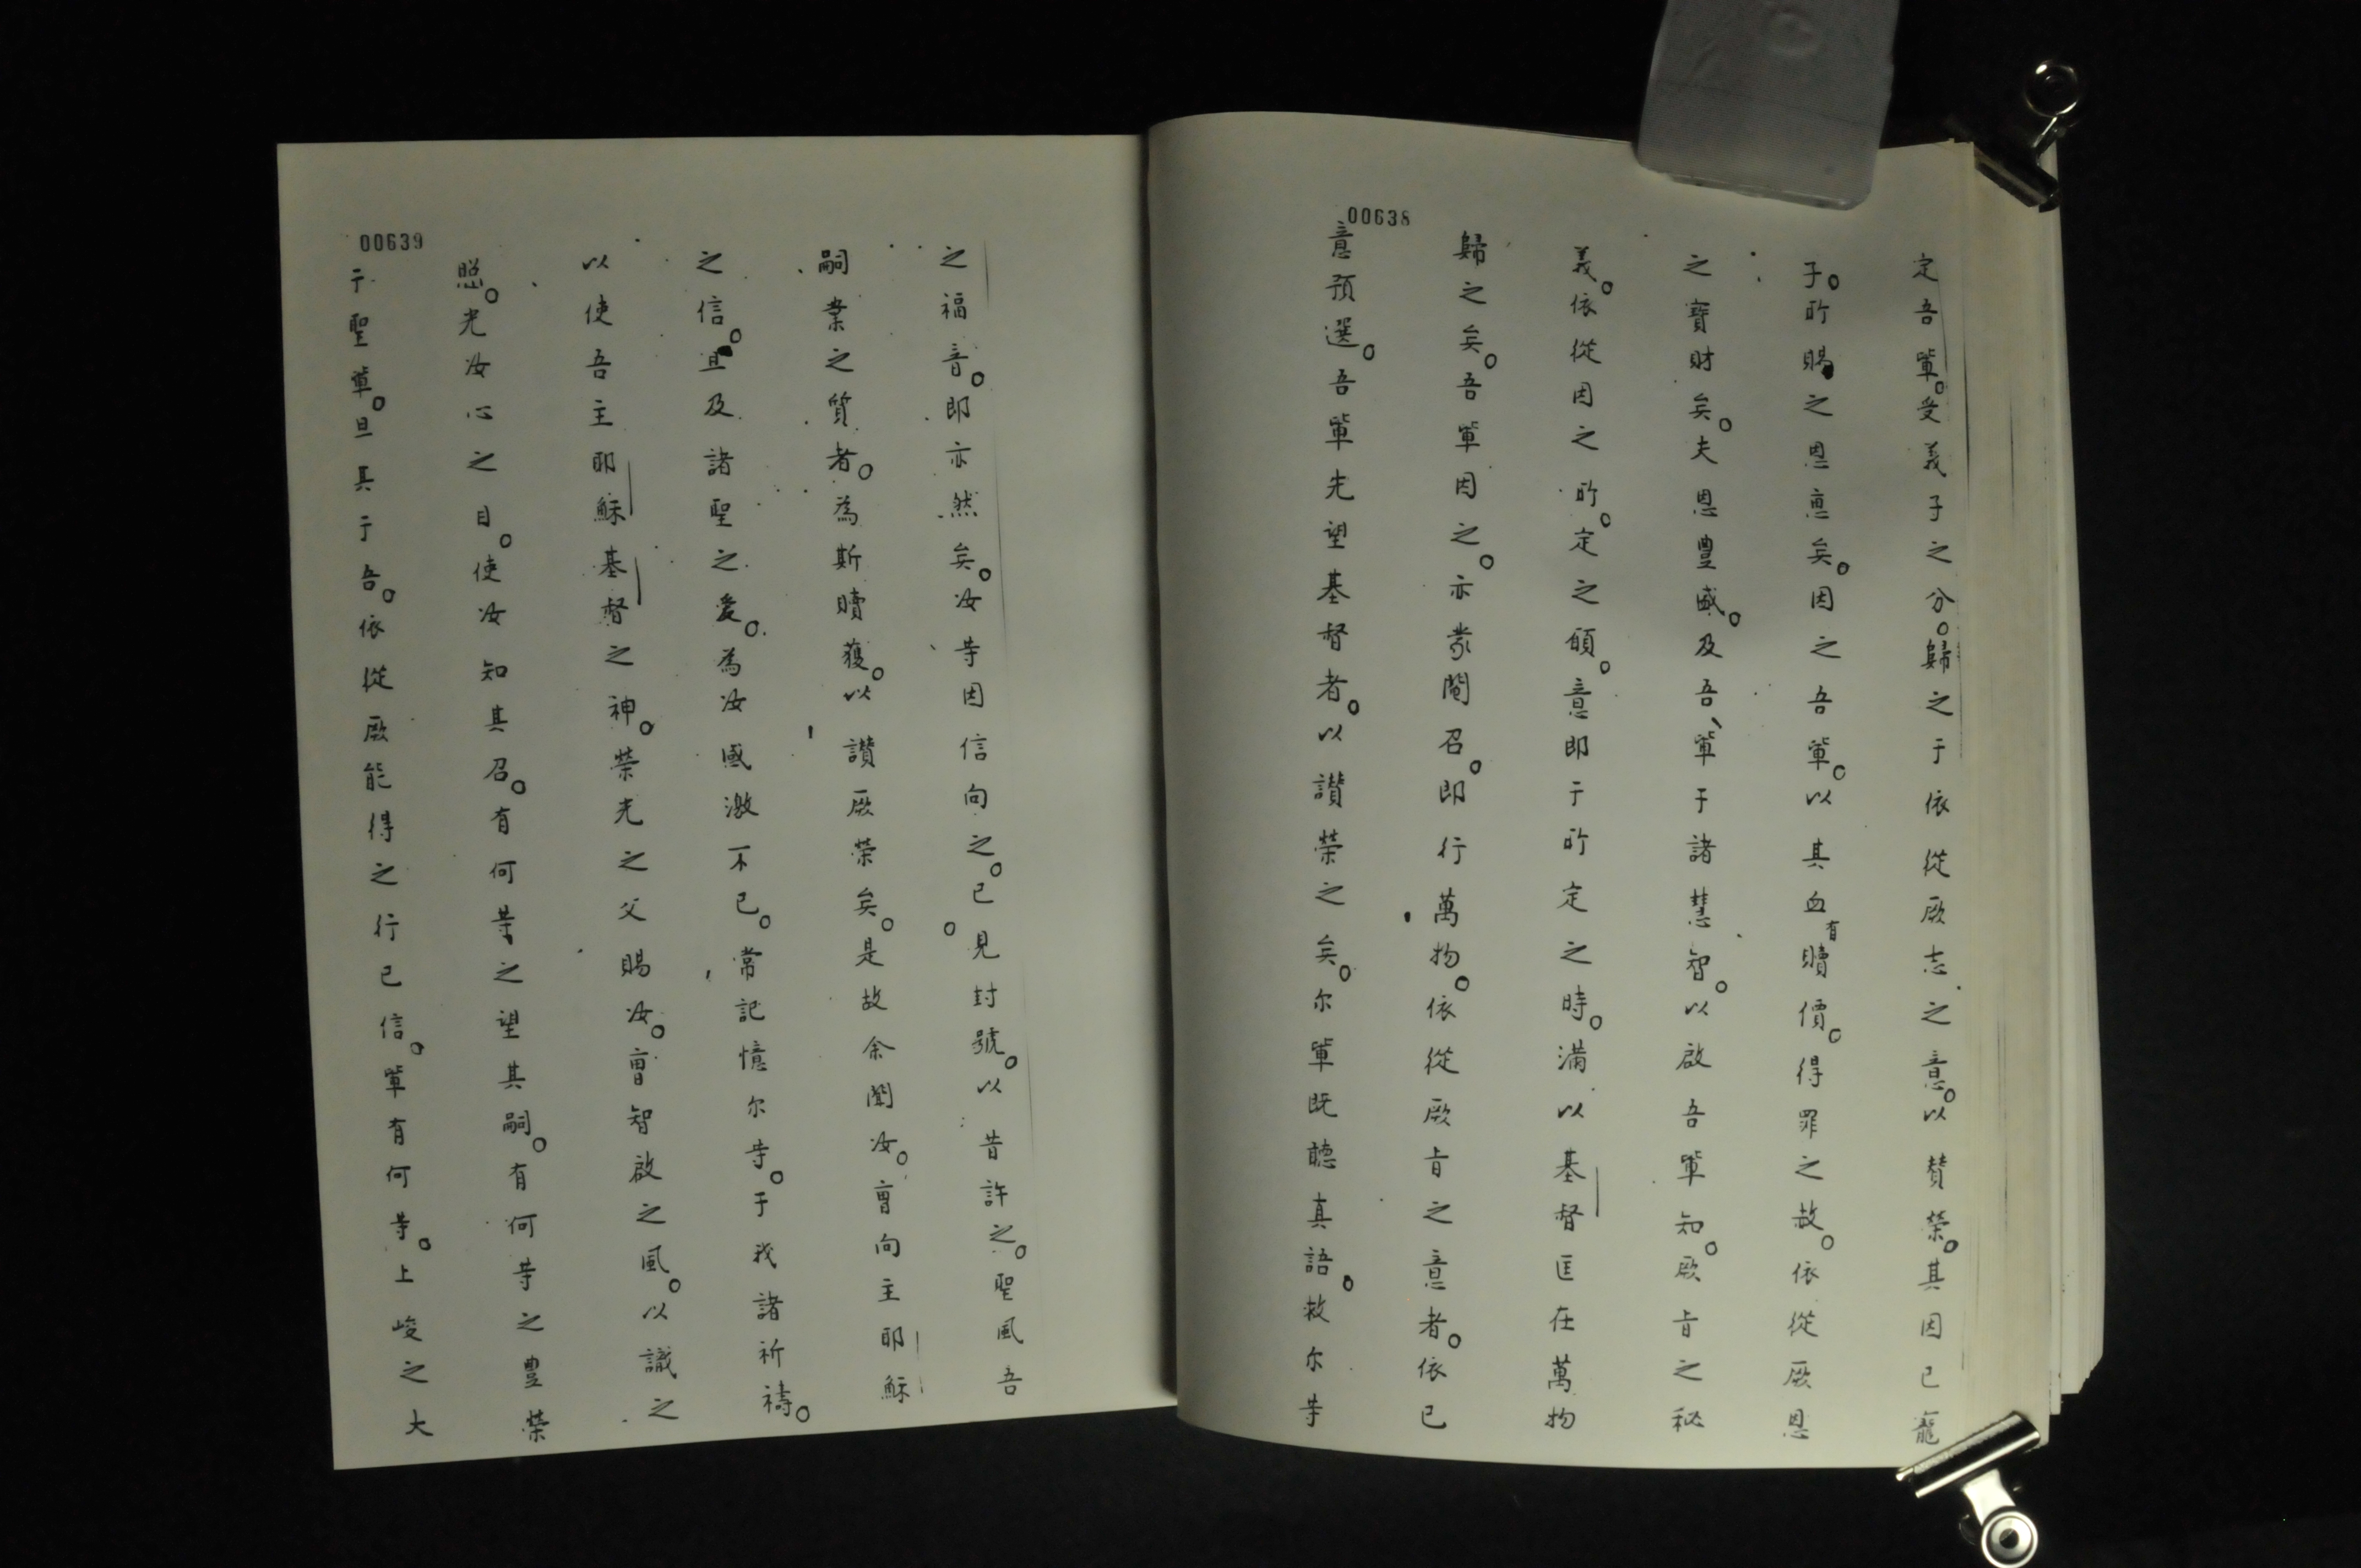 00638
定吾軰。受義子之分。歸之于依從厥志之意。以賛榮。其因已寵
子。所賜之恩惠矣。因之吾軰。以其血有贖價。得罪之故。依從厥恩
之寶財矣。夫恩豊盛。及吾軰于諸慧智。以啟吾軰知。厥旨之秘
義。依從因之所。定之頠。意即于所定之時。満以基督匡在萬物
歸之矣。吾軰因之。亦蒙閹召。即行萬物。依從厥旨之意者。依已
意預選。吾軰先望基督者。以讃榮之矣。尔軰既聼真語。救尔等
00639
之福音。即亦然矣。汝等因信向之。已見封號。以昔許之。聖風吾
嗣業之質者。為斯贖獲。以讃厥榮矣。是故余聞汝。曺向主耶穌
之信。且及諸聖之愛。為汝感激不已。常記憶尔等。于我諸祈禱。
以使吾主耶穌基督之神。榮光之父賜汝。曺智啟之風。以識之
照。光汝心之目。使汝知其召。有何等之望其嗣。有何等之豊榮
于聖軰。旦其于吾。依從厥能得之行已信。軰有何等。上峻之大